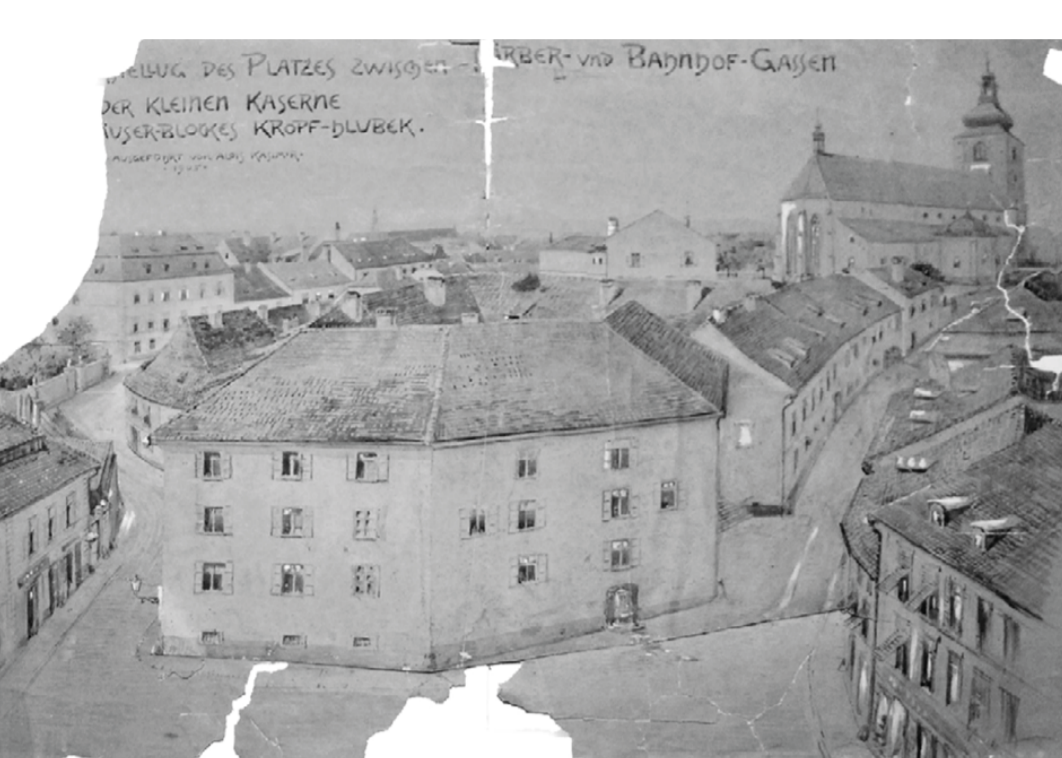 DES PLATZES ZWISCHEN - ÄRBER- UND BAHNHOF-GASSEN
DER KLEINEN KASERNE
USER-BLOCKES KROPF-HLUBEK.
AUSGEFÜHRT VON ALOIS KASIMIR.